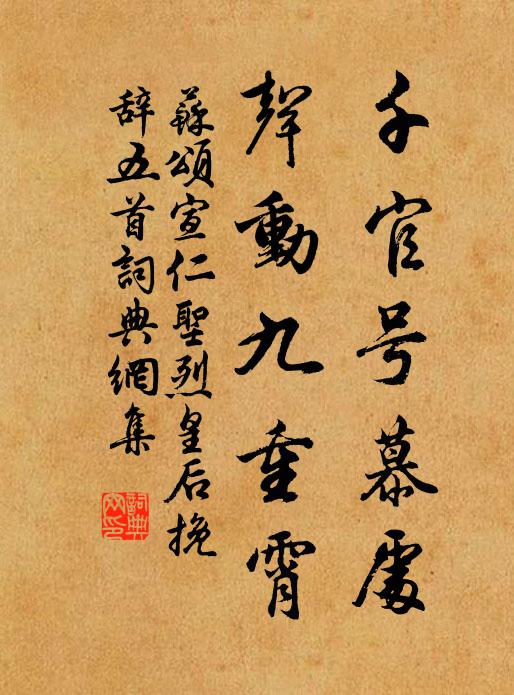 千官号慕處
聲動九重霄
蘇頌宣仁聖烈皇后挽
辞五首詞典網集
詞典
网印